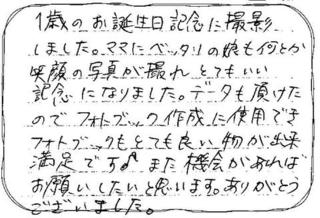 1歳のお誕生日記念に撮影
しました。ママにベッタリの娘も何とか
笑顔の写真が撮れとてもいい
記念になりました。データも頂けた
のでフォトブック作成に使用でき
フォトブックもとても良い物が出来
満足です♪また機会があれば
お願いしたいと思います。ありがとう
ございました。